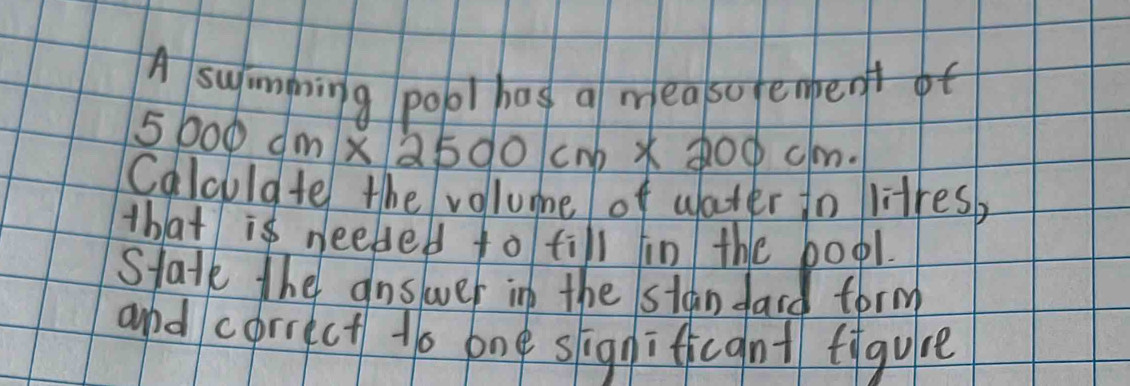 A swimming pool has a measurement of
5000 cm x 2500 cm x 200 cm.
Calculate the volume of water in litres,
that is needed to fill in the pool.
State the answer in the standard form
and correct to one significant figure